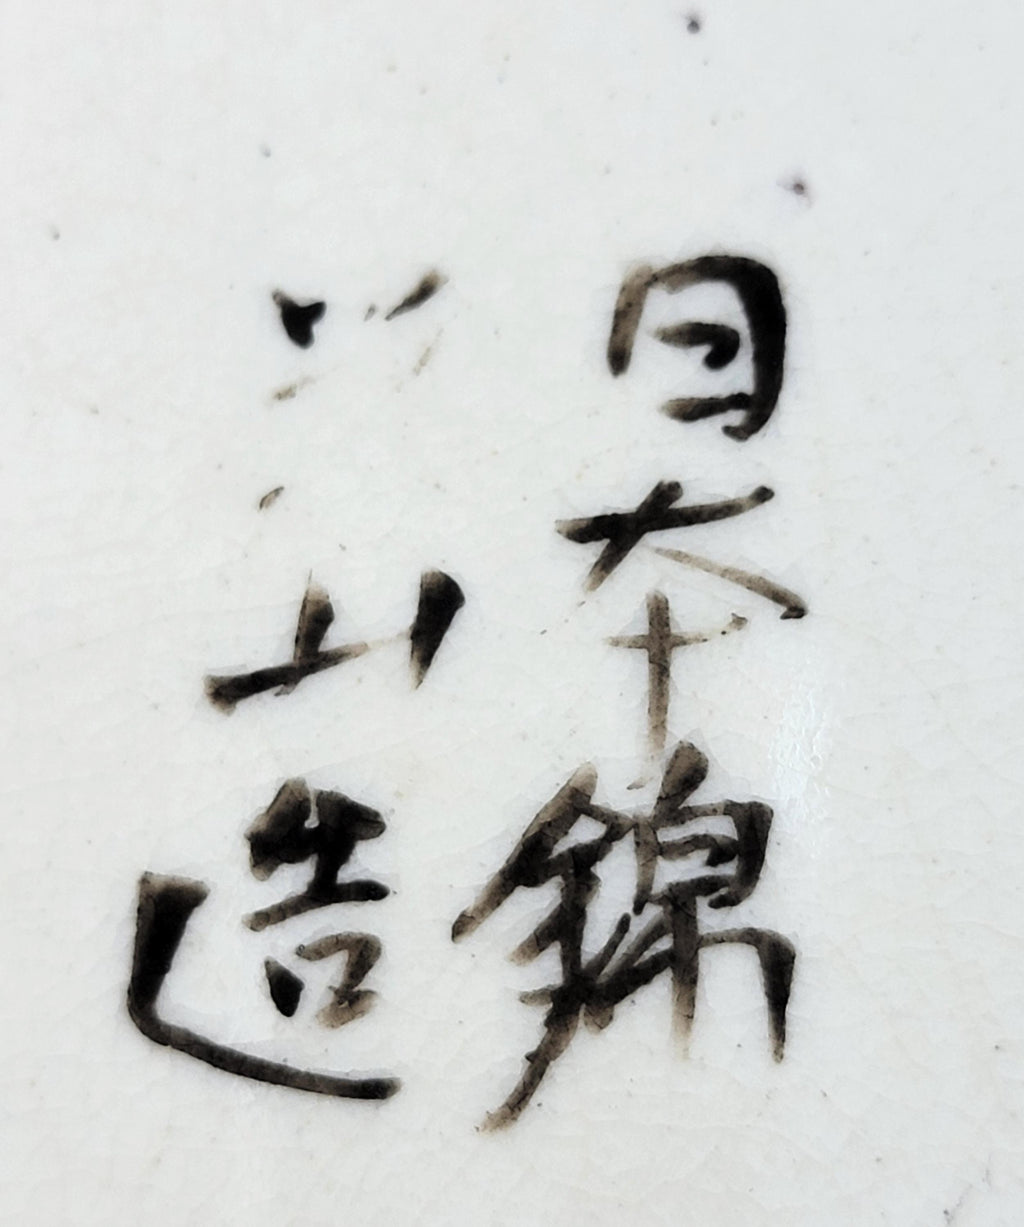 日本錦
光山造